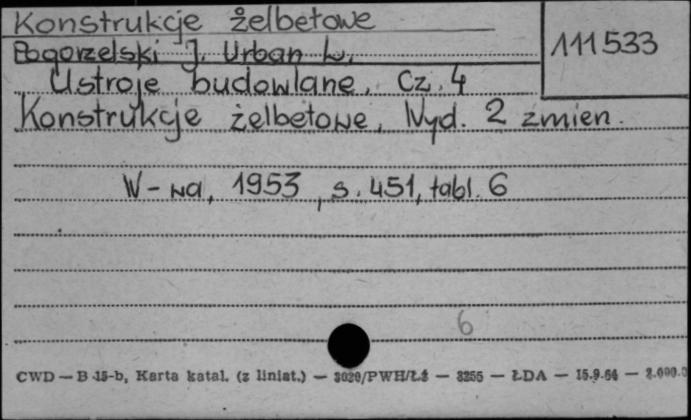 Konstrukcje żelbetowe
111533
Pogorzelski J. Urban L.
Ustroje budowlane, Cz. 4
Konstrukcje żelbetowe, Wyd. 2 zmien.
W-wa, 1953, s. 451, tabl. 6
6
CWD — B 15-b, Karta katal. (z liniat.) — 3020/PWH/Ł3 — 3255 — ŁDA — 15.9.54 — 2.000.0